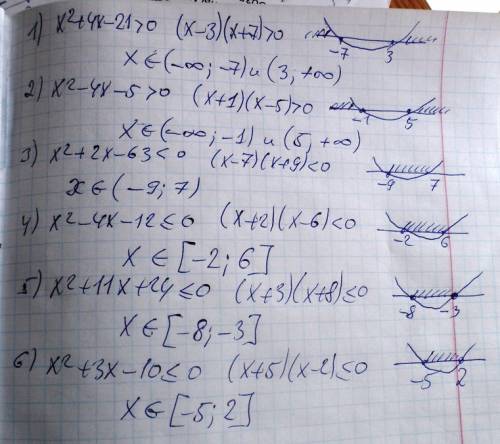 1) x²+4x-21>0 (x-3)(x+7)>0 -7 3
x∈(-∞; -7) и (3; +∞)
2) x²-4x-5>0 (x+1)(x-5)>0 -1 5
x∈(-∞; -1) и (5; +∞)
3) x²+2x-63<0 (x-7)(x+9)<0 -9 7
x∈(-9; 7)
4) x²-4x-12≤0 (x+2)(x-6)<0 -2 6
x∈[-2; 6]
5) x²+11x+24≤0 (x+3)(x+8)≤0 -8 -3
x∈[-8; -3]
6) x²+3x-10≤0 (x+5)(x-2)≤0 -5 2
x∈[-5; 2]